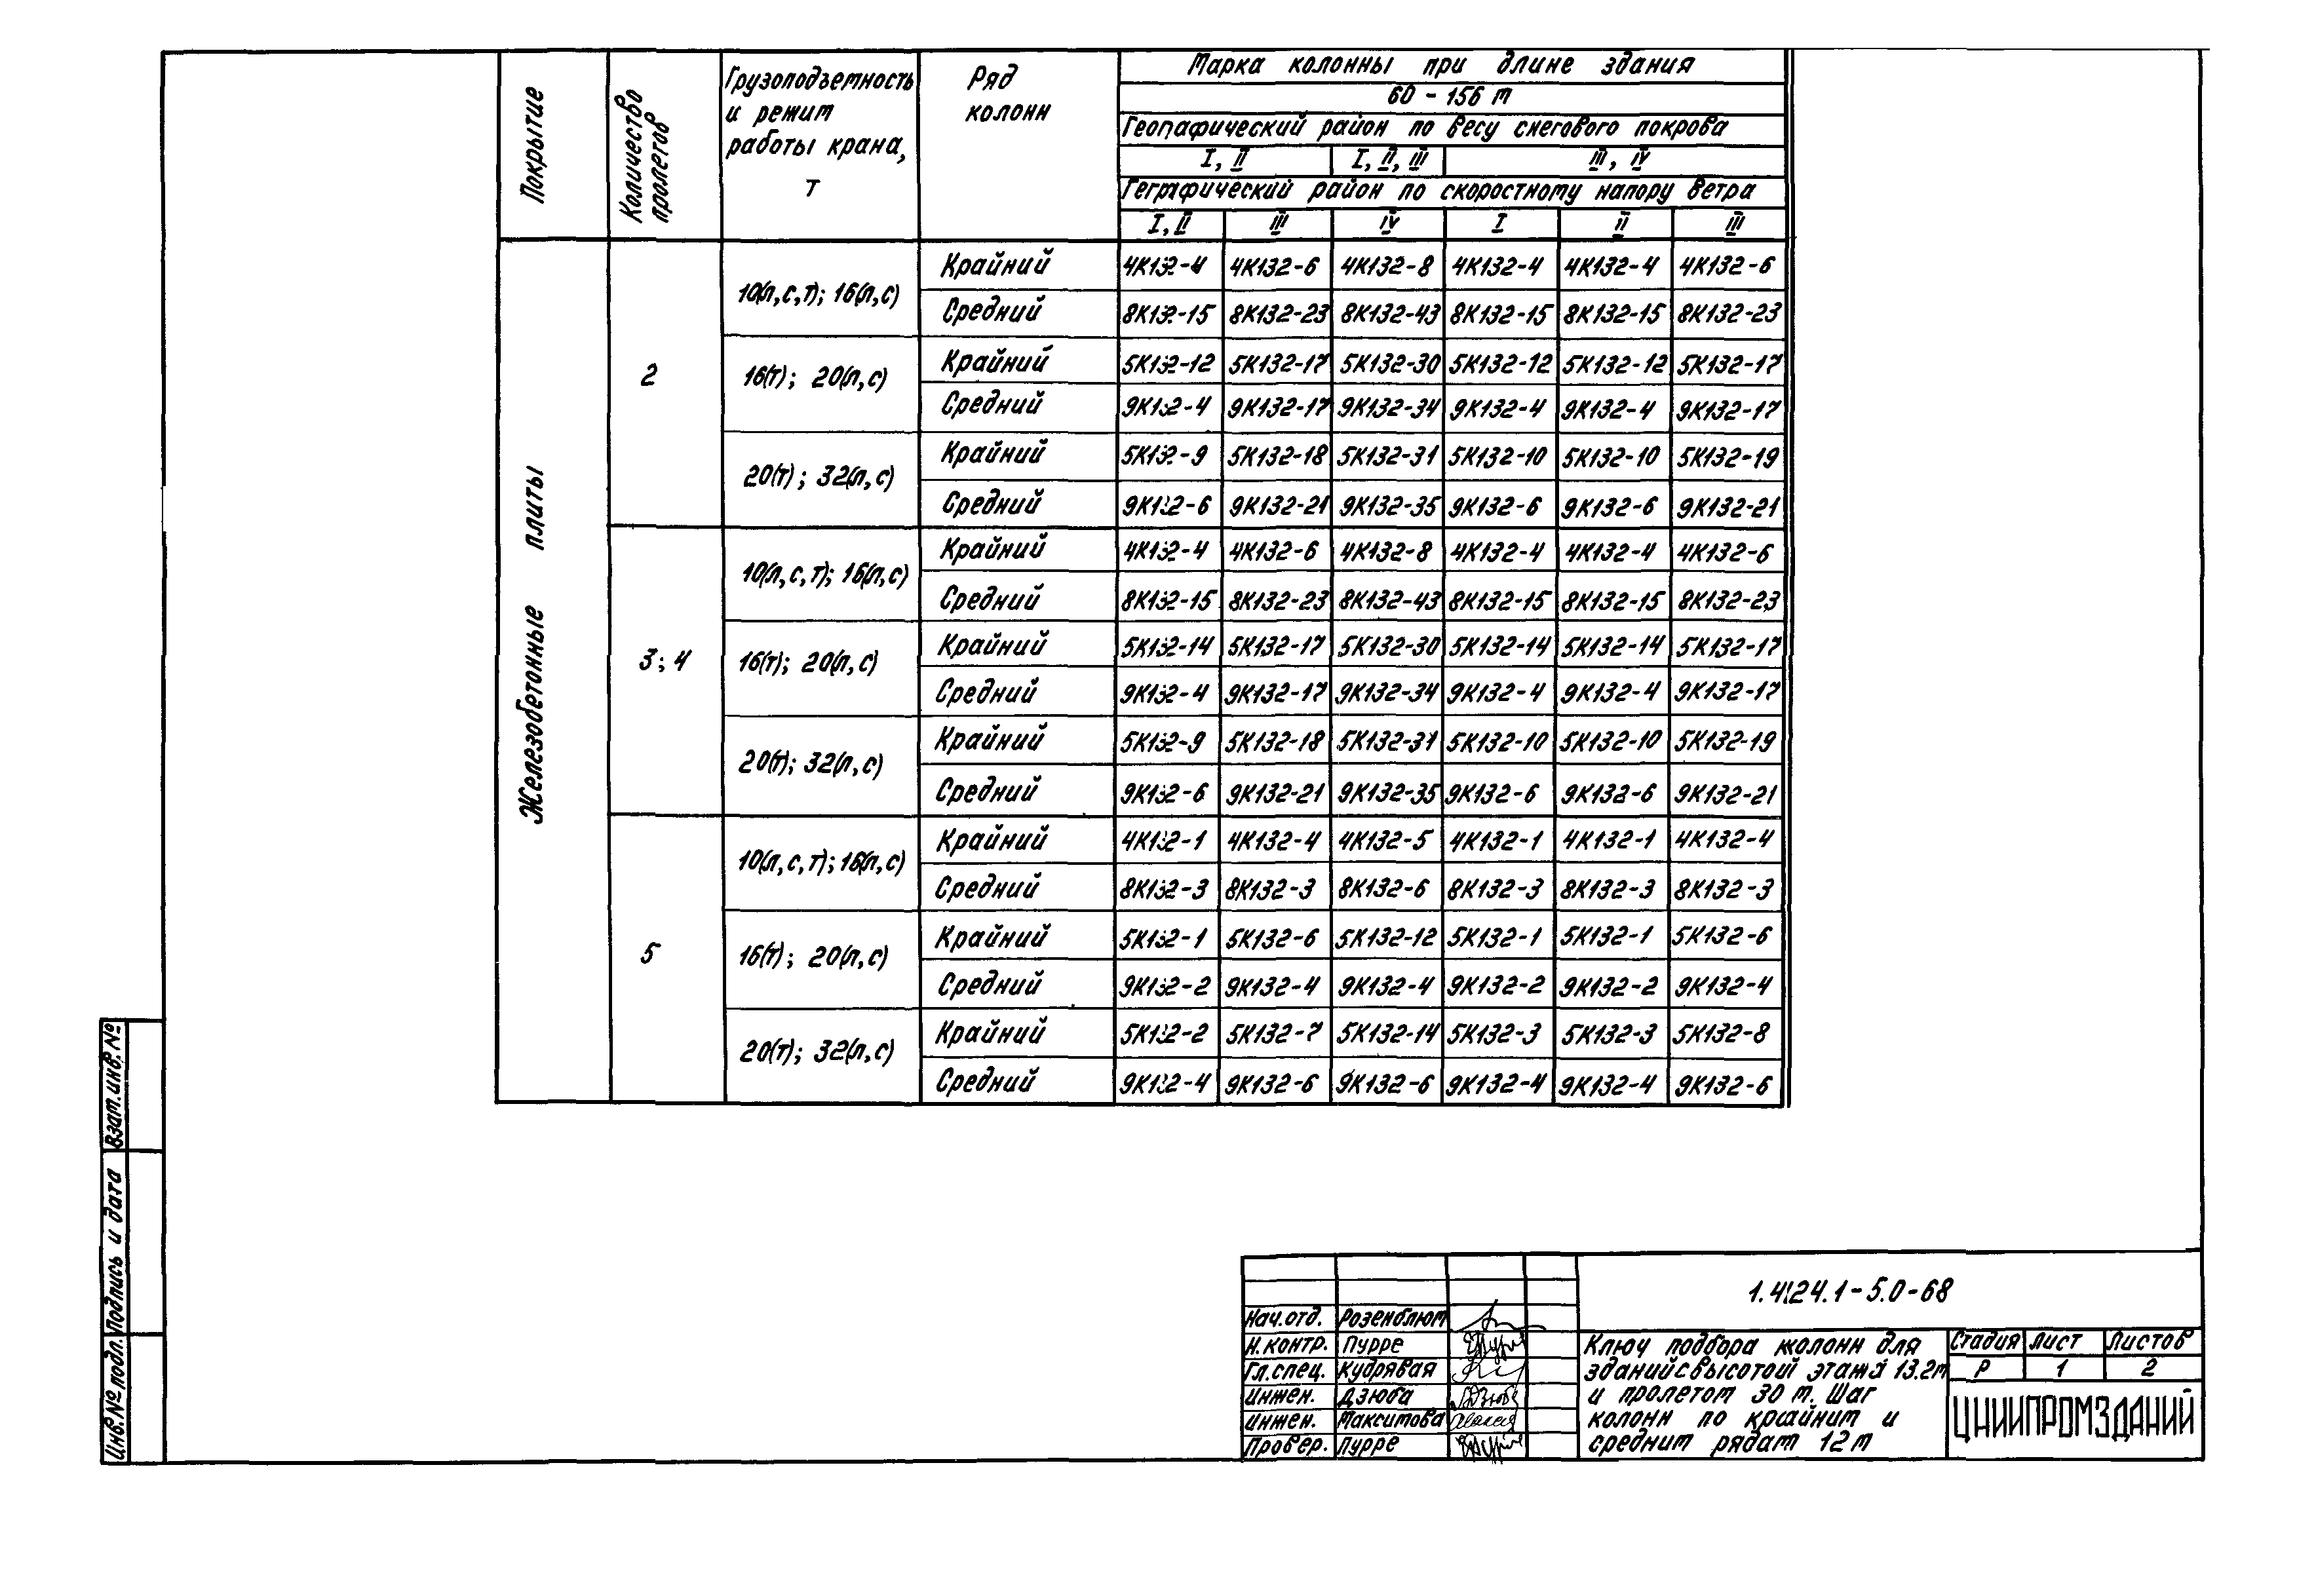 Покрытие
Количество пролетов
Грузоподъемность
и режим
работы крана,
т
Ряд
колонн
Марка колонны при длине здания
60 - 156 м
Геогафический район по весу снегового покрова
I, II | I, II, III | III, IV
Геграфический район по скоростному напору ветра
I, II | III | IV | I | II | III
Железобетонные плиты
2
10(л,с,т); 16(л,с)
Крайний 4К132-4 4К132-6 4К132-8 4К132-4 4К132-4 4К132-6
Средний 8К132-15 8К132-23 8К132-43 8К132-15 8К132-15 8К132-23
16(т); 20(л,с)
Крайний 5К132-12 5К132-17 5К132-30 5К132-12 5К132-12 5К132-17
Средний 9К132-4 9К132-17 9К132-34 9К132-4 9К132-4 9К132-17
20(т); 32(л,с)
Крайний 5К132-9 5К132-18 5К132-31 5К132-10 5К132-10 5К132-19
Средний 9К132-6 9К132-21 9К132-35 9К132-6 9К132-6 9К132-21
3; 4
10(л,с,т); 16(л,с)
Крайний 4К132-4 4К132-6 4К132-8 4К132-4 4К132-4 4К132-6
Средний 8К132-15 8К132-23 8К132-43 8К132-15 8К132-15 8К132-23
16(т); 20(л,с)
Крайний 5К132-14 5К132-17 5К132-30 5К132-14 5К132-14 5К132-17
Средний 9К132-4 9К132-17 9К132-34 9К132-4 9К132-4 9К132-17
20(т); 32(л,с)
Крайний 5К132-9 5К132-18 5К132-31 5К132-10 5К132-10 5К132-19
Средний 9К132-6 9К132-21 9К132-35 9К132-6 9К132-6 9К132-21
5
10(л,с,т); 16(л,с)
Крайний 4К132-1 4К132-4 4К132-5 4К132-1 4К132-1 4К132-4
Средний 8К132-3 8К132-3 8К132-6 8К132-3 8К132-3 8К132-3
16(т); 20(л,с)
Крайний 5К132-1 5К132-6 5К132-12 5К132-1 5К132-1 5К132-6
Средний 9К132-2 9К132-4 9К132-4 9К132-2 9К132-2 9К132-4
20(т); 32(л,с)
Крайний 5К132-2 5К132-7 5К132-14 5К132-3 5К132-3 5К132-8
Средний 9К132-4 9К132-6 9К132-6 9К132-4 9К132-4 9К132-6
Взам.инв.№
Подпись и дата
Инв.№ подл.
1.424.1-5.0-68
Нач.отд. Розенблюм
Н.контр. Пурре
Гл.спец. Кудрявая
Инжен. Дзюба
Инжен. Максимова
Провер. Пурре
Ключ подбора колонн для
зданий с высотой этажа 13.2м
и пролетом 30 м. Шаг
колонн по крайним и
средним рядам 12 м
Стадия Лист Листов
Р 1 2
ЦНИИПРОМЗДАНИЙ